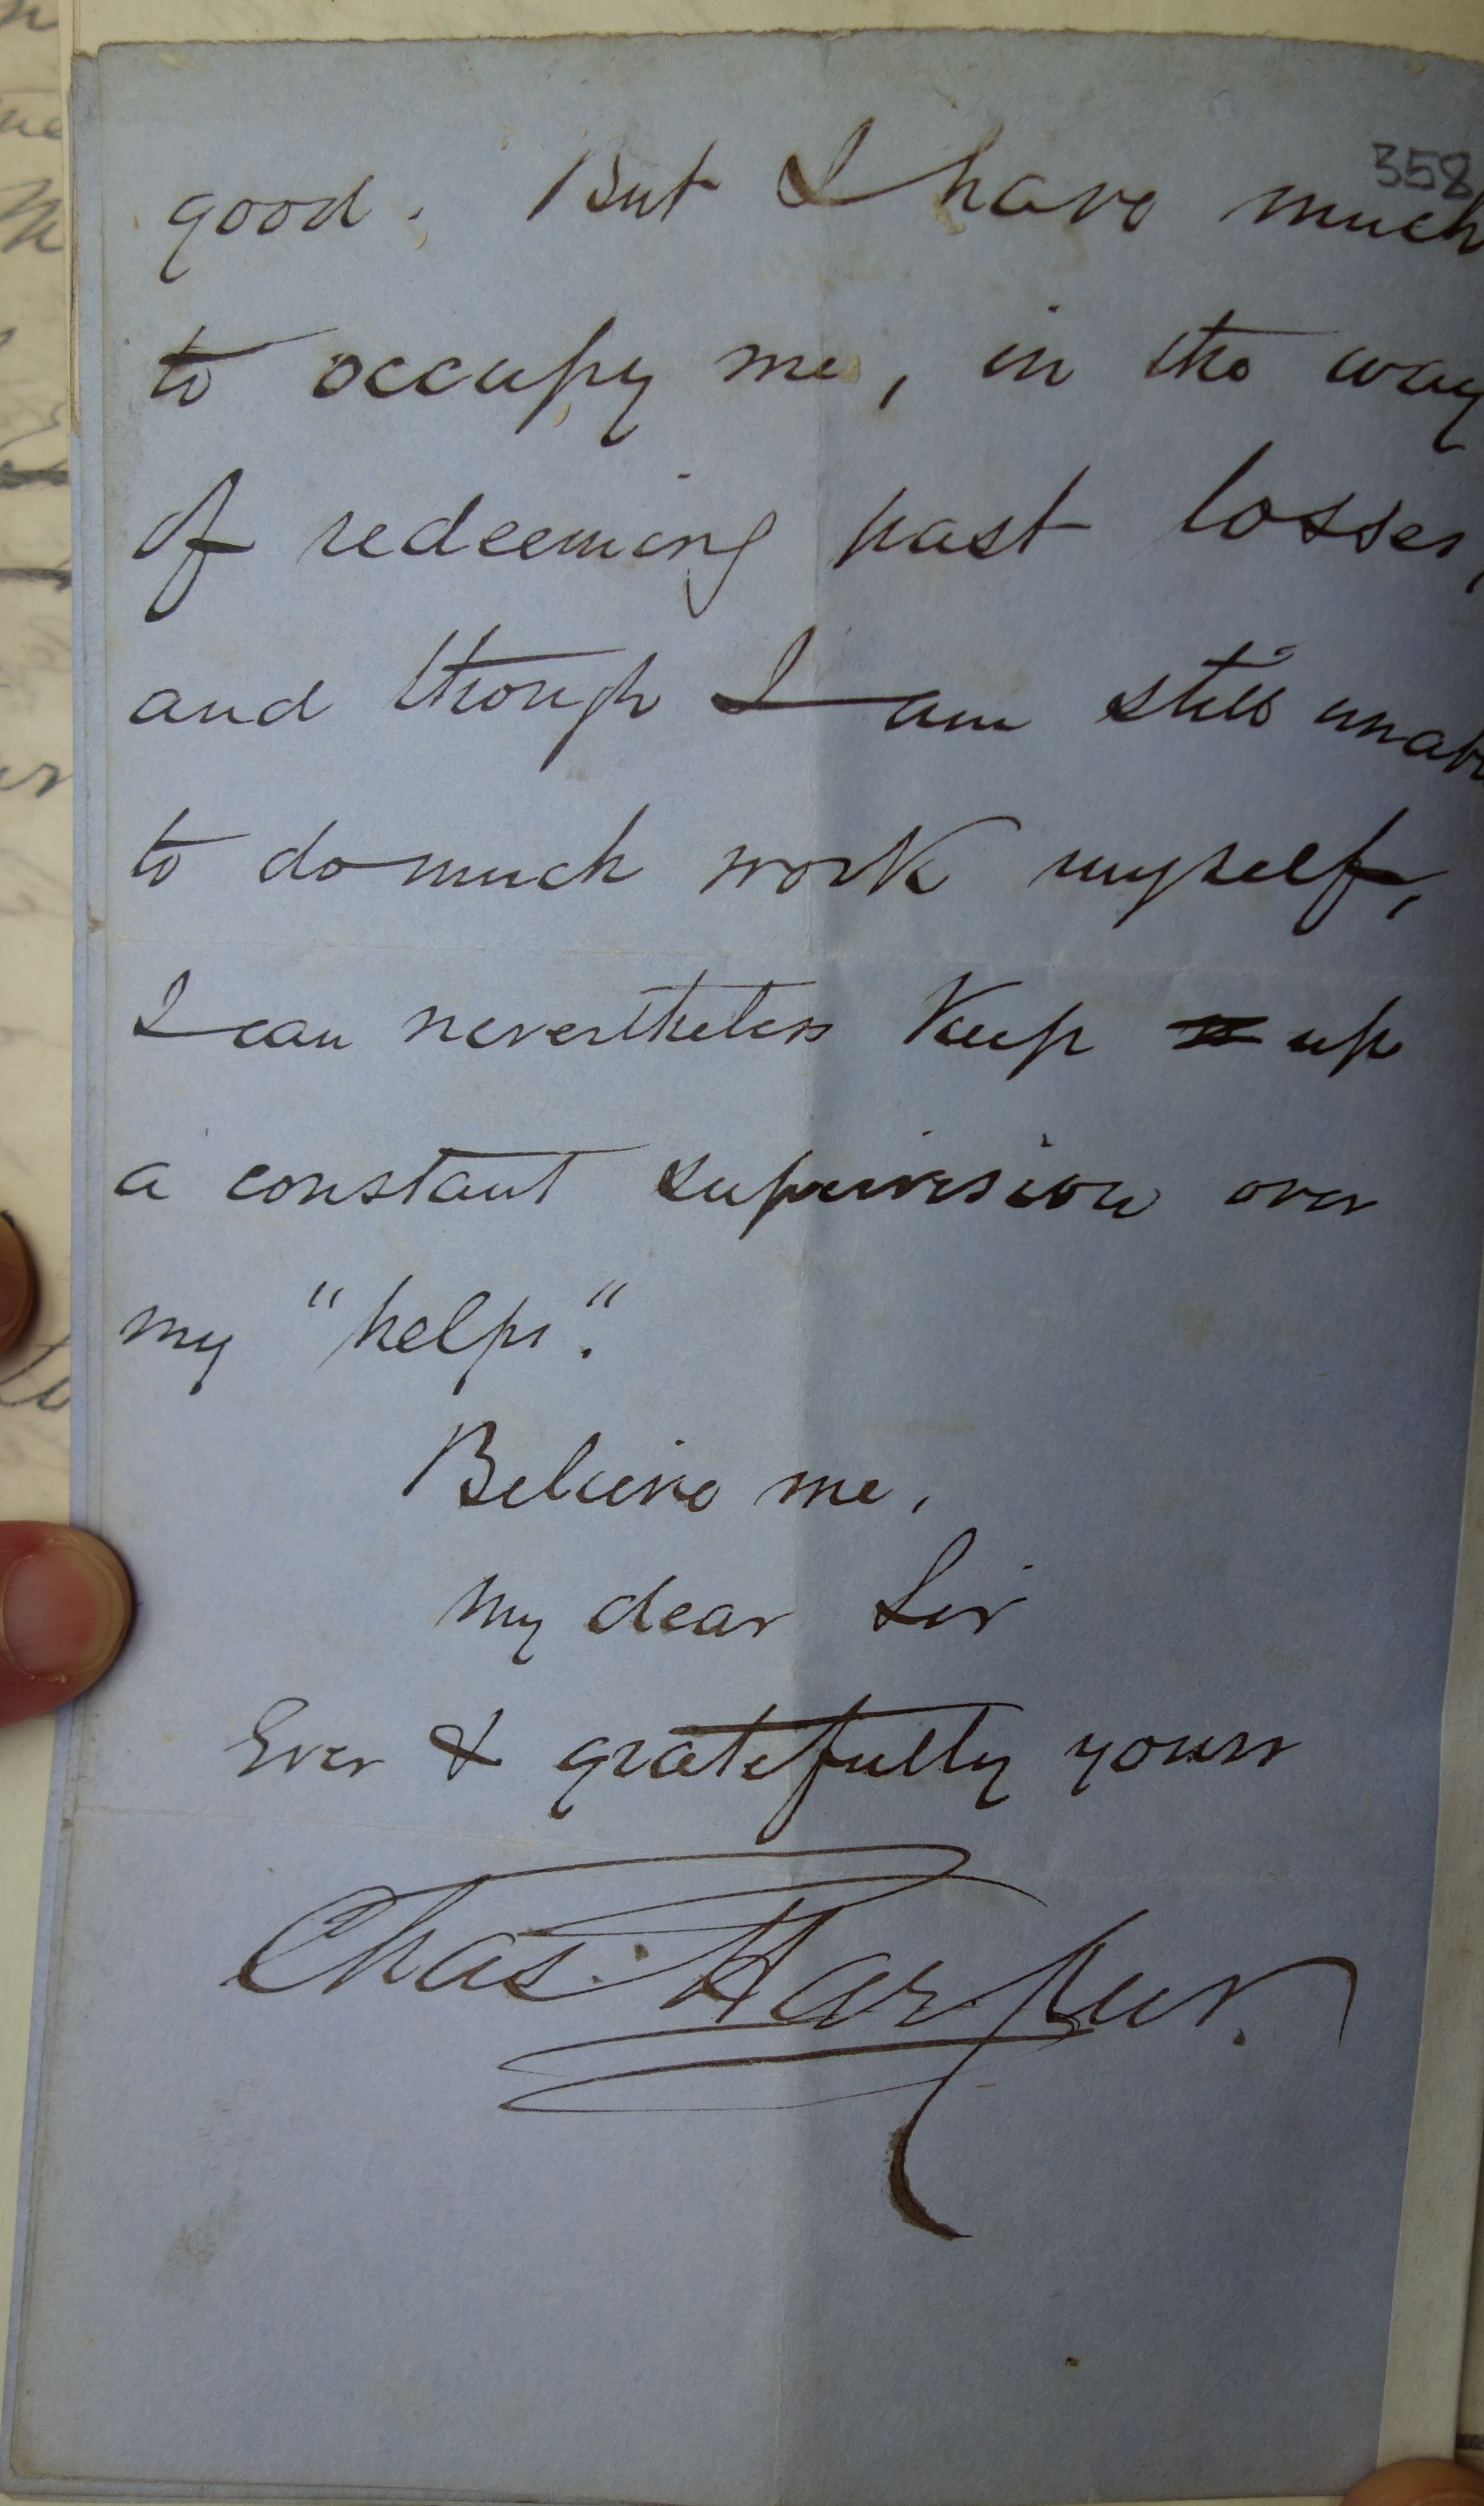 358
good. But I have much
to occupy me, in the way
of redeeming past losses,
and though I am still unab
to do much work myself,
I can nevertheless keep up
a constant supervision over
my "helps".
Believe me,
My dear Sir
Ever & gratefully yours
Chas. Harpur.